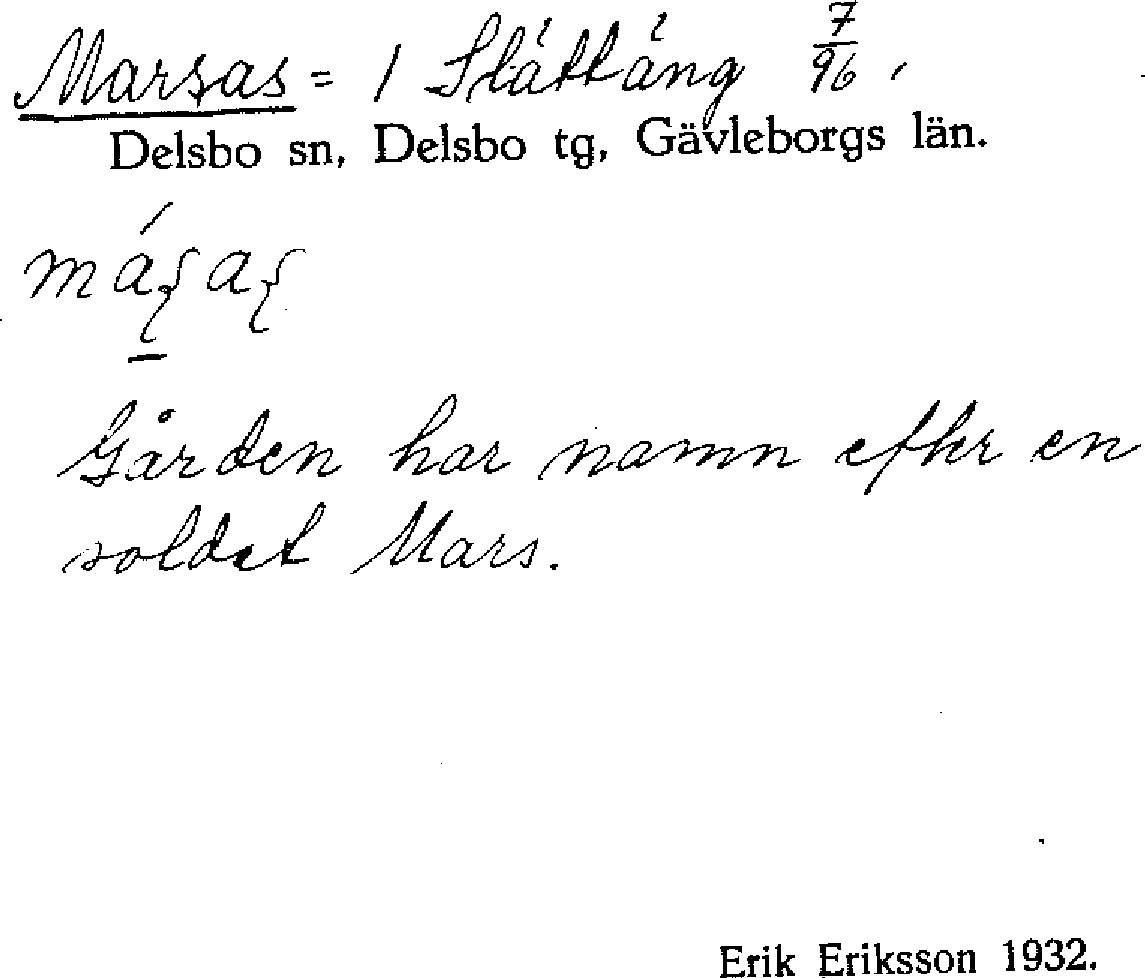 Marsas = 1 Slåttäng 7/96,
Delsbo sn, Delsbo tg, Gävleborgs län.
Gården har namn efter en
soldat Mars.
Erik Eriksson 1932.